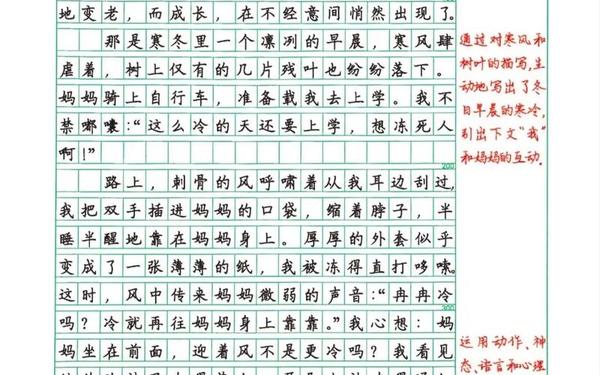 地变老，而成长，在不经意间悄然出现了。
那是寒冬里一个凛冽的早晨，寒风肆
虐着，树上仅有的几片残叶也纷纷落下。
妈妈骑上自行车，准备载我去上学。我不
禁嘟囔：“这么冷的天还要上学，想冻死人
啊！”
200
路上，刺骨的风呼啸着从我耳边刮过，
我把双手插进妈妈的口袋，缩着脖子，半
睡半醒地靠在妈妈身上。厚厚的外套似乎
变成了一张薄薄的纸，我被冻得直打哆嗦。
这时，风中传来妈妈微弱的声音：“冉冉冷
300
吗？冷就再往妈妈身上靠靠。”我心想：妈
妈坐在前面，迎着风不是更冷吗？我看见
通过对寒风和
树叶的描写，生
动地写出了冬
日早晨的寒冷，
引出下文“我”
和妈妈的互动.
运用动作、神
态、语言和心理